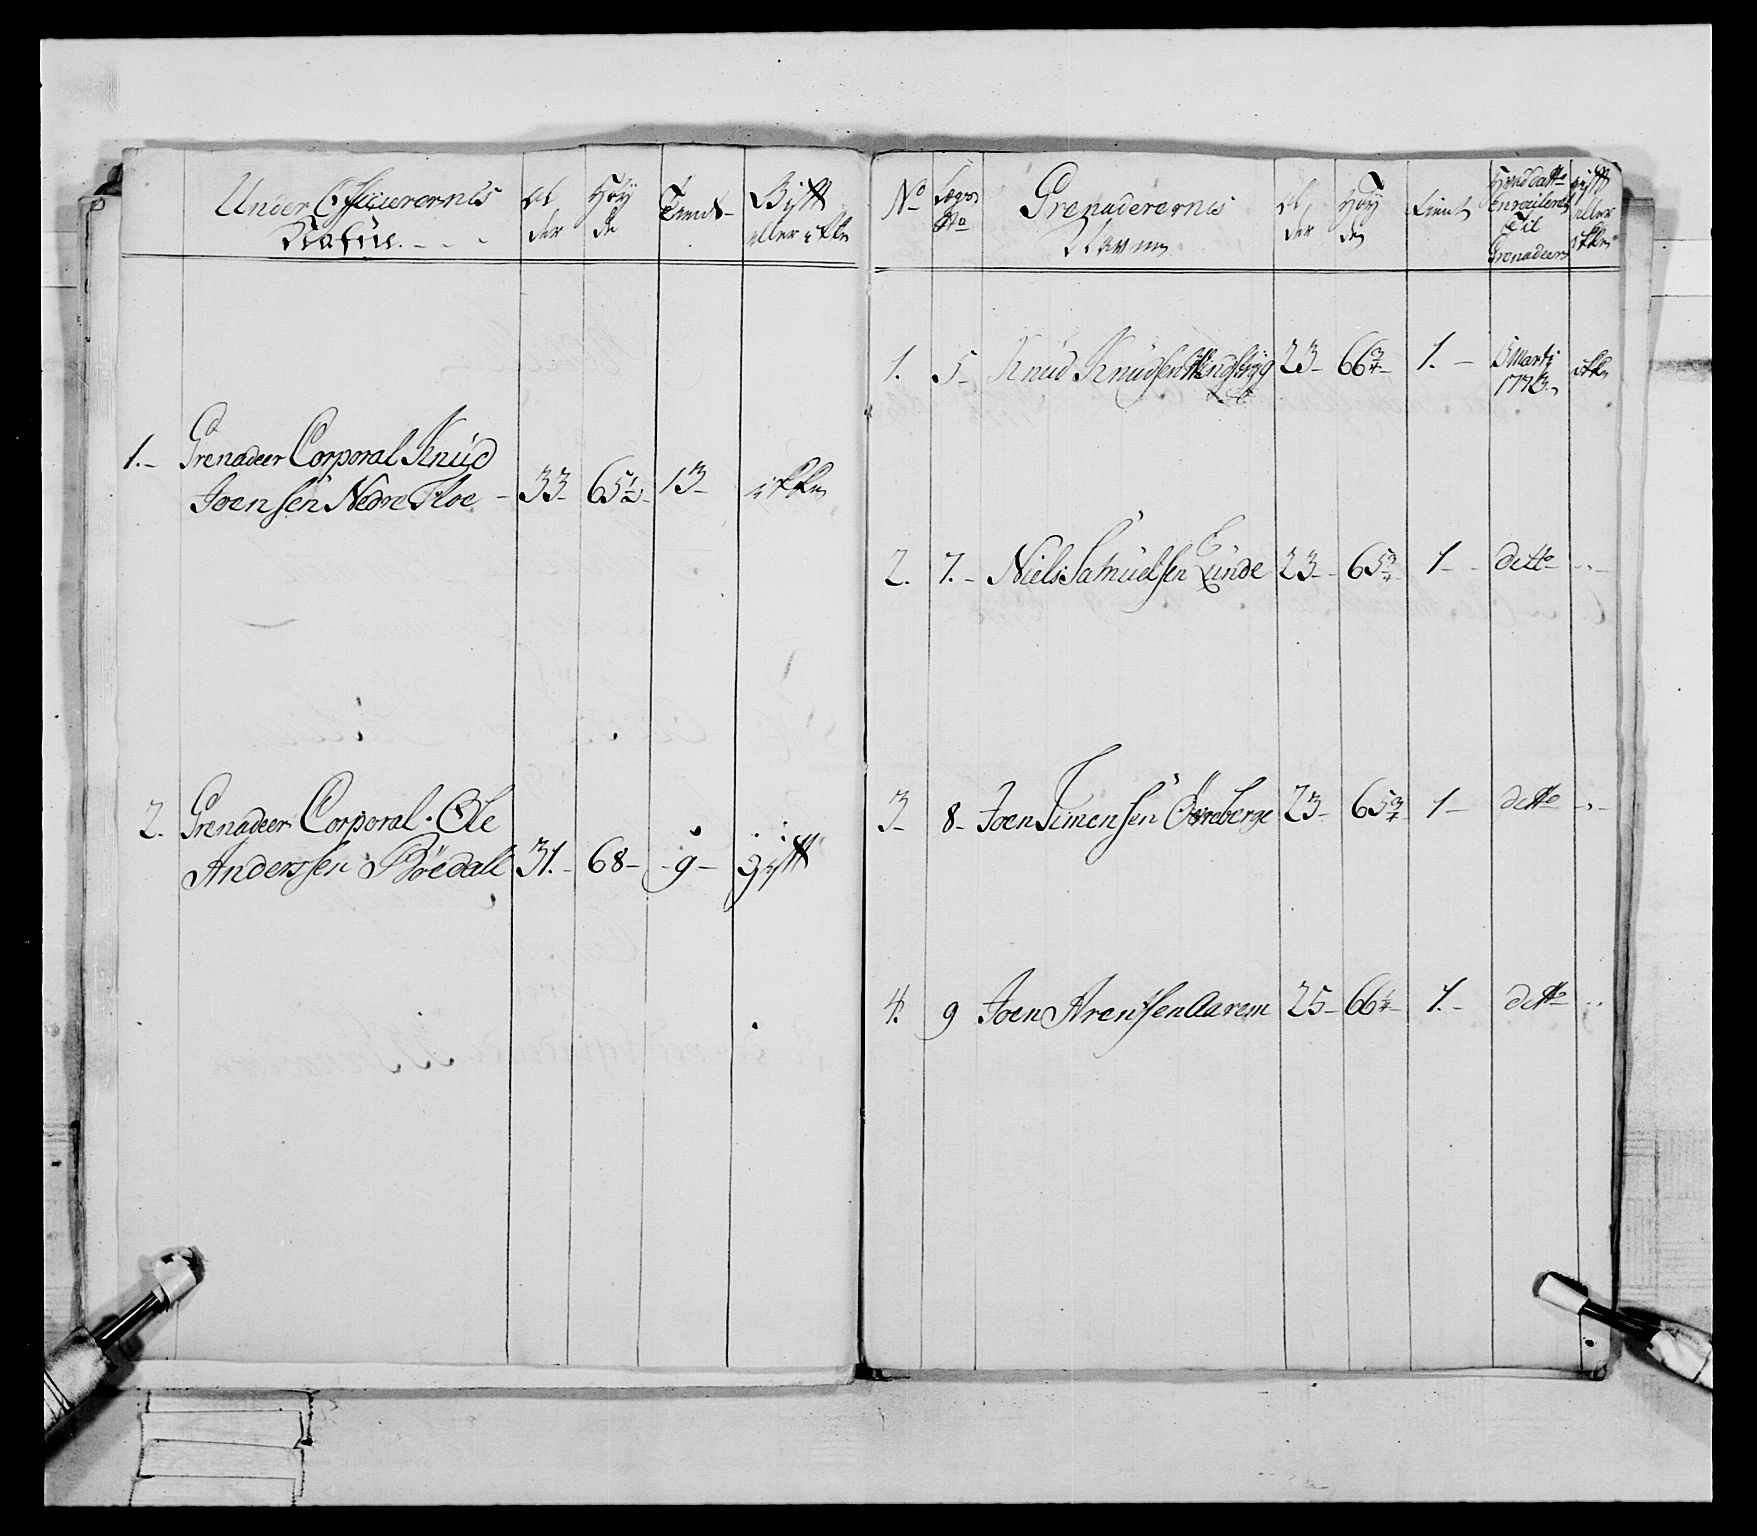 Under Officerernes
Nafne
Al
der
Høy
de
Tient
Gift
eller ikke
1. Grenadeer Corporal Knud
Joensen Nedre Floe 33 65½ 13 ikke
2. Grenadeer Corporal Ole
Anderssen Böedall 31. 68 9 gift
No
Lægs
No
Grenaderernes
Navne
Al
der
Høy
de
tient
Hvad datto
enroulerit
til
Grenadeer
gift
eller
ikke
1. 5 Knud Knudsen 23 66¾ 1. 5 Marti
1773 ikke
2. 7. Niels Samuelsen Lunde 23 65¾ 1 ditto
3 8 Joen Simensen Øvreberge 23 65¾ 1 ditto
4. 9 Joen Arentsen Aarem 25 66¼ 1. ditto